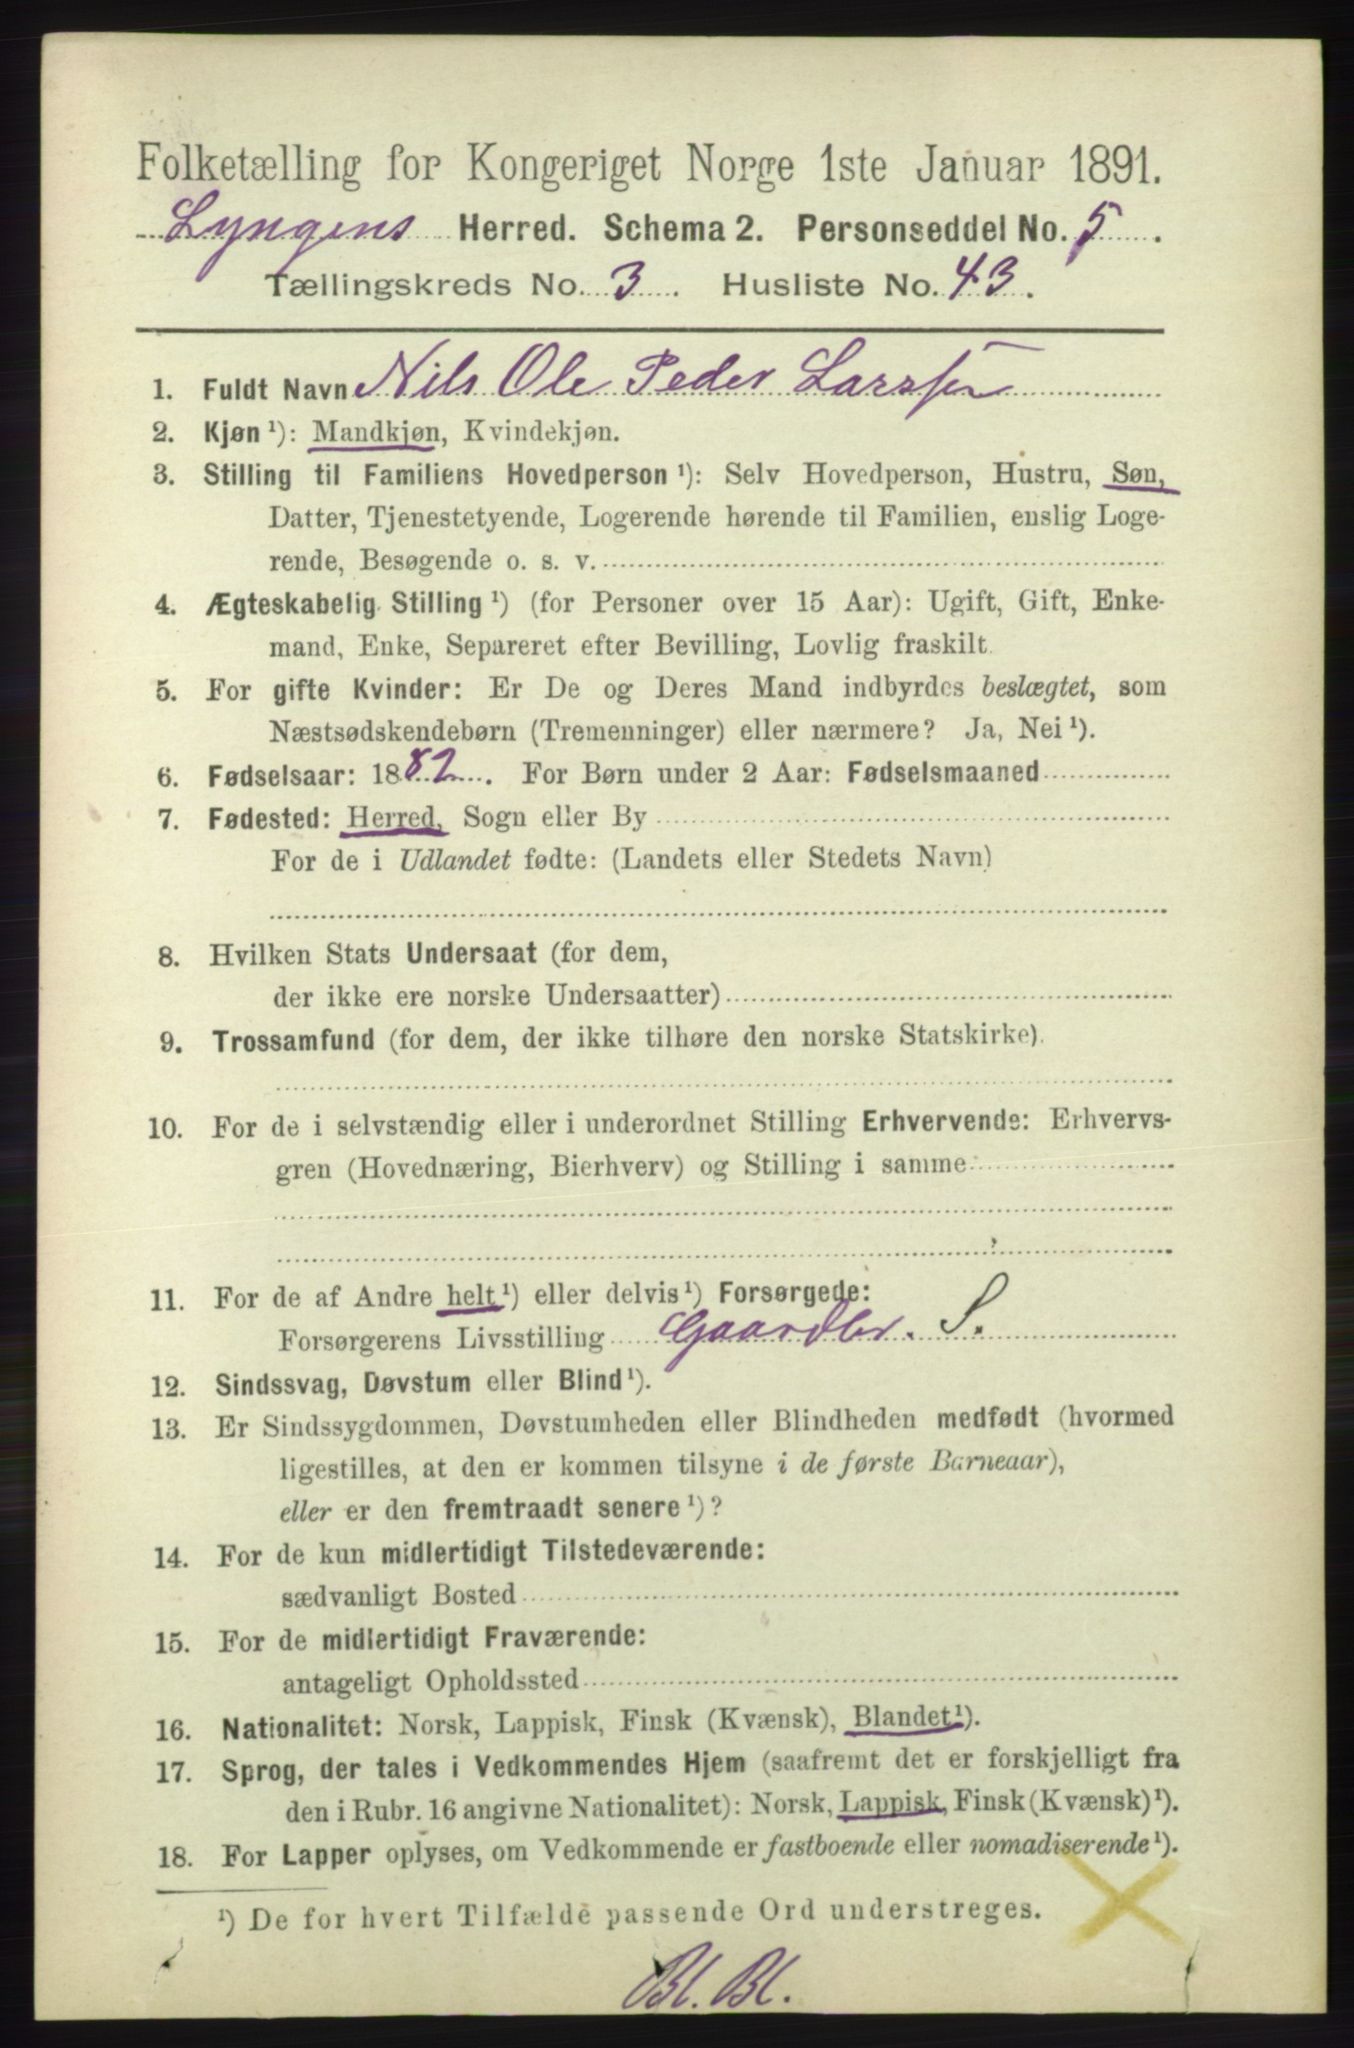 Folketælling for Kongeriget Norge 1ste Januar 1891.
Lyngens Herred. Schema 2. Personseddel No. 5.
Tællingskreds No. 3. Husliste No. 43.
1. Fuldt Navn Nils Ole Peder Larssen
2. Kjøn ¹): Mandkjøn, Kvindekjøn.
3. Stilling til Familiens Hovedperson ¹): Selv Hovedperson, Hustru, Søn,
Datter, Tjenestetyende, Logerende hørende til Familien, enslig Loge-
rende, Besøgende o. s. v.
4. Ægteskabelig Stilling ¹) (for Personer over 15 Aar): Ugift, Gift, Enke-
mand, Enke, Separeret efter Bevilling, Lovlig fraskilt.
5. For gifte Kvinder: Er De og Deres Mand indbyrdes beslægtet, som
Næstsødskendebørn (Tremenninger) eller nærmere? Ja, Nei ¹).
6. Fødselsaar: 1882. For Børn under 2 Aar: Fødselsmaaned
7. Fødested: Herred, Sogn eller By
For de i Udlandet fødte: (Landets eller Stedets Navn)
8. Hvilken Stats Undersaat (for dem,
der ikke ere norske Undersaatter)
9. Trossamfund (for dem, der ikke tilhøre den norske Statskirke).
10. For de i selvstændig eller i underordnet Stilling Erhvervende: Erhvervs-
gren (Hovednæring, Bierhverv) og Stilling i samme
11. For de af Andre helt ¹) eller delvis ¹) Forsørgede:
Forsørgerens Livsstilling Gaardbr. S.
12. Sindssvag, Døvstum eller Blind ¹).
13. Er Sindssygdommen, Døvstumheden eller Blindheden medfødt (hvormed
ligestilles, at den er kommen tilsyne i de første Barneaar),
eller er den fremtraadt senere ¹)?
14. For de kun midlertidigt Tilstedeværende:
sædvanligt Bosted
15. For de midlertidigt Fraværende:
antageligt Opholdssted
16. Nationalitet: Norsk, Lappisk, Finsk (Kvænsk), Blandet ¹).
17. Sprog, der tales i Vedkommendes Hjem (saafremt det er forskjelligt fra
den i Rubr. 16 angivne Nationalitet): Norsk, Lappisk, Finsk (Kvænsk) ¹).
18. For Lapper oplyses, om Vedkommende er fastboende eller nomadiserende ¹).
¹) De for hvert Tilfælde passende Ord understreges.
Bl. Bl.